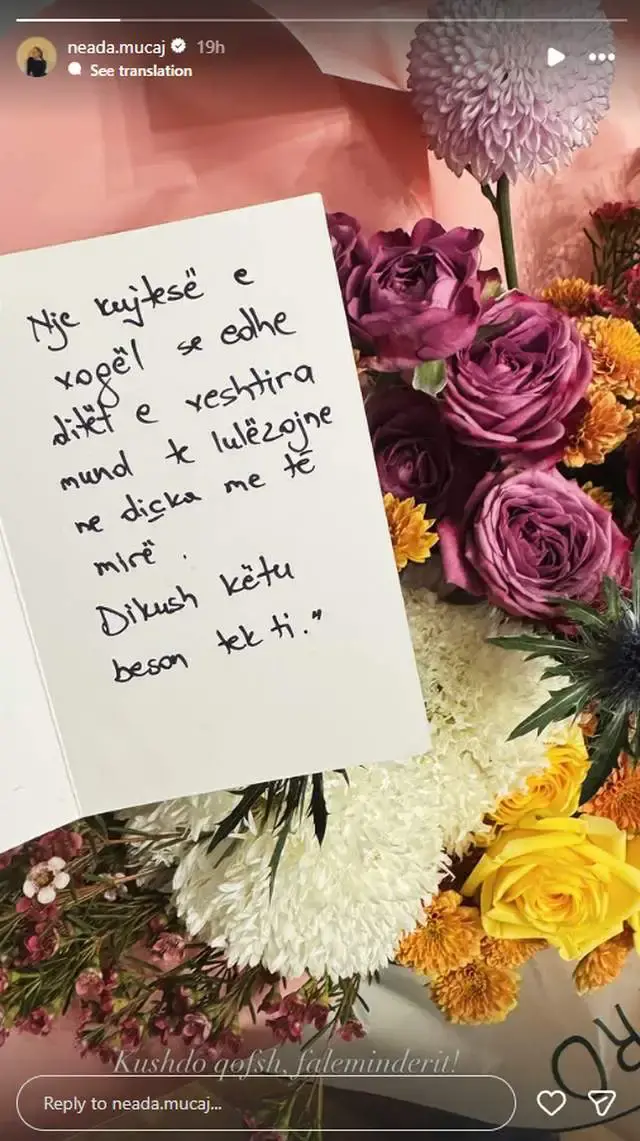 neada.mucaj 19h
See translation
Nje kujtesë e
vogël se edhe
ditët e veshtira
mund te lulëzojne
ne diçka me të
mirë .
Dikush këtu
beson tek ti."
RO
Kushdo qofsh, faleminderit!
Reply to neada.mucaj...